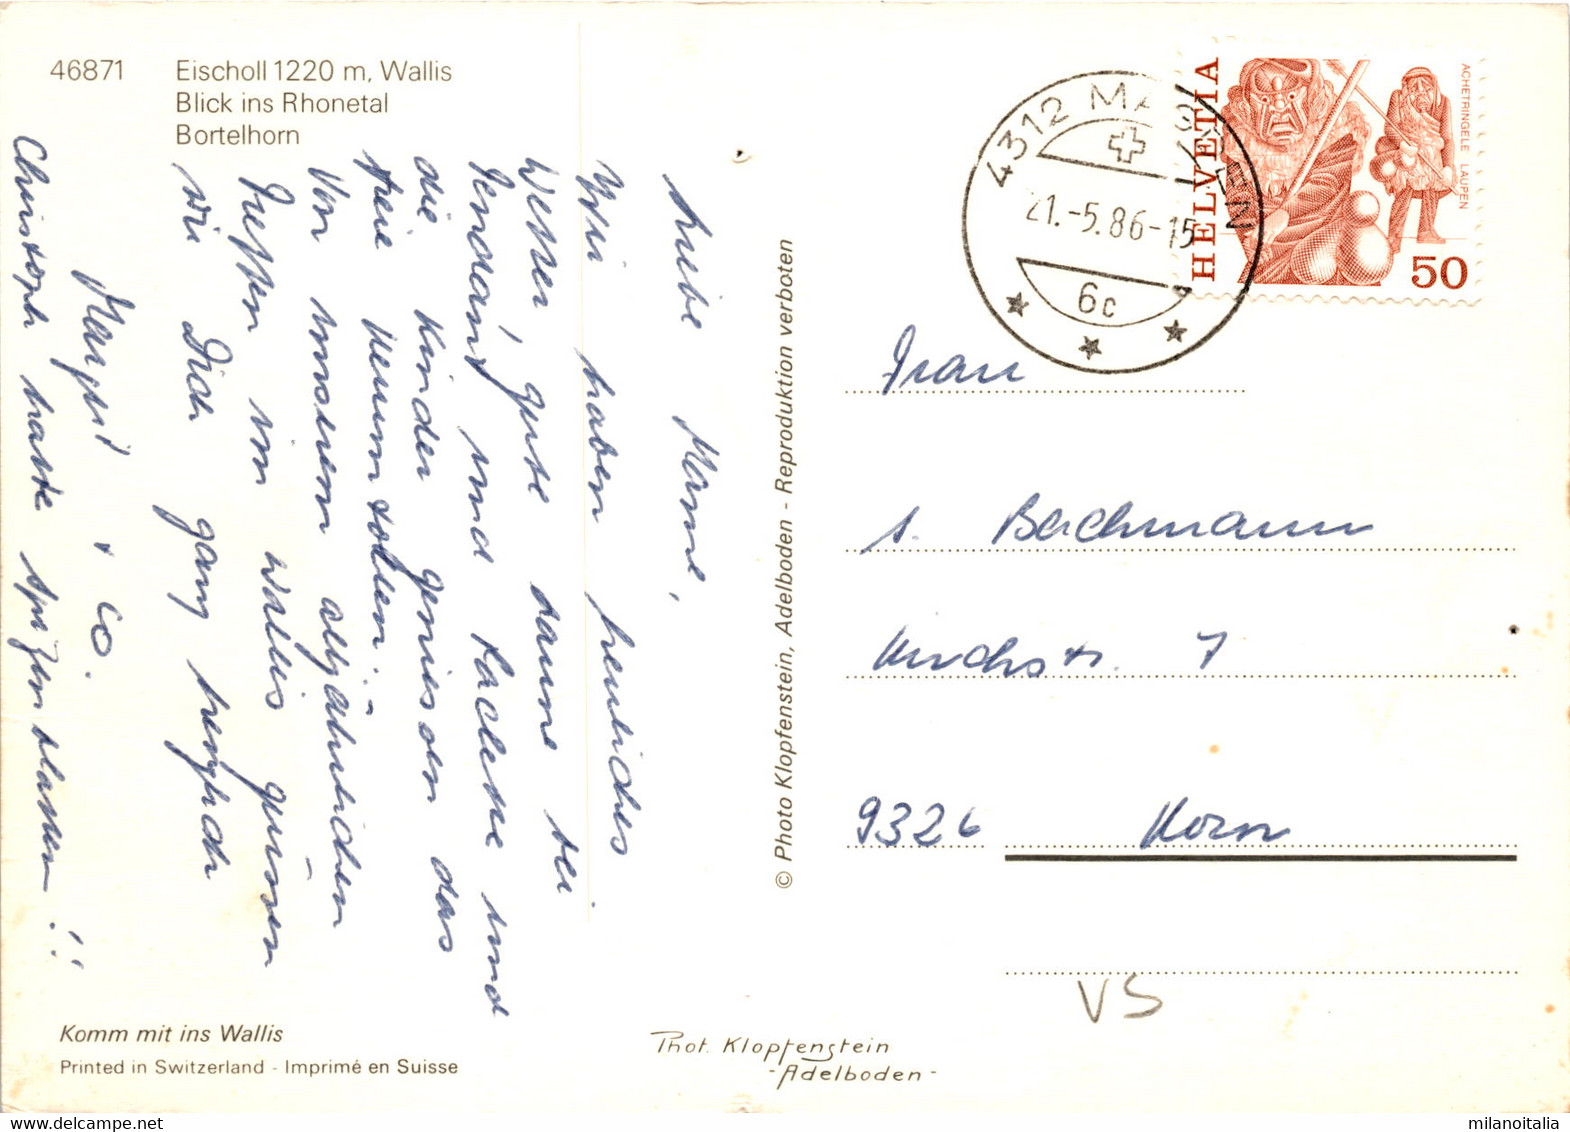 46871 Eischoll 1220 m, Wallis
Blick ins Rhonetal
Bortelhorn
Liebe Mame,
Wir haben herrliches
Wetter, gute Laune bei
Fendant und Raclette und
die Kinder geniessen das
freie herumtollen.
Von unserem alljährlichen
Treffen im Wallis grüssen
wir Dich ganz herzlich
Margrit + Co.
Christoph hatte spitzen blasen!!
Komm mit ins Wallis
Printed in Switzerland - Imprimé en Suisse
© Photo Klopfenstein, Adelboden - Reproduktion verboten
Phot. Klopfenstein
- Adelboden -
4312 MAGDEN
21.-5.86-15
6c
HELVETIA
ACHETRINGELE LAUPEN
50
Frau
A. Bachmann
Kirchstr. 7
9326 Horn
VS
milanoitalia